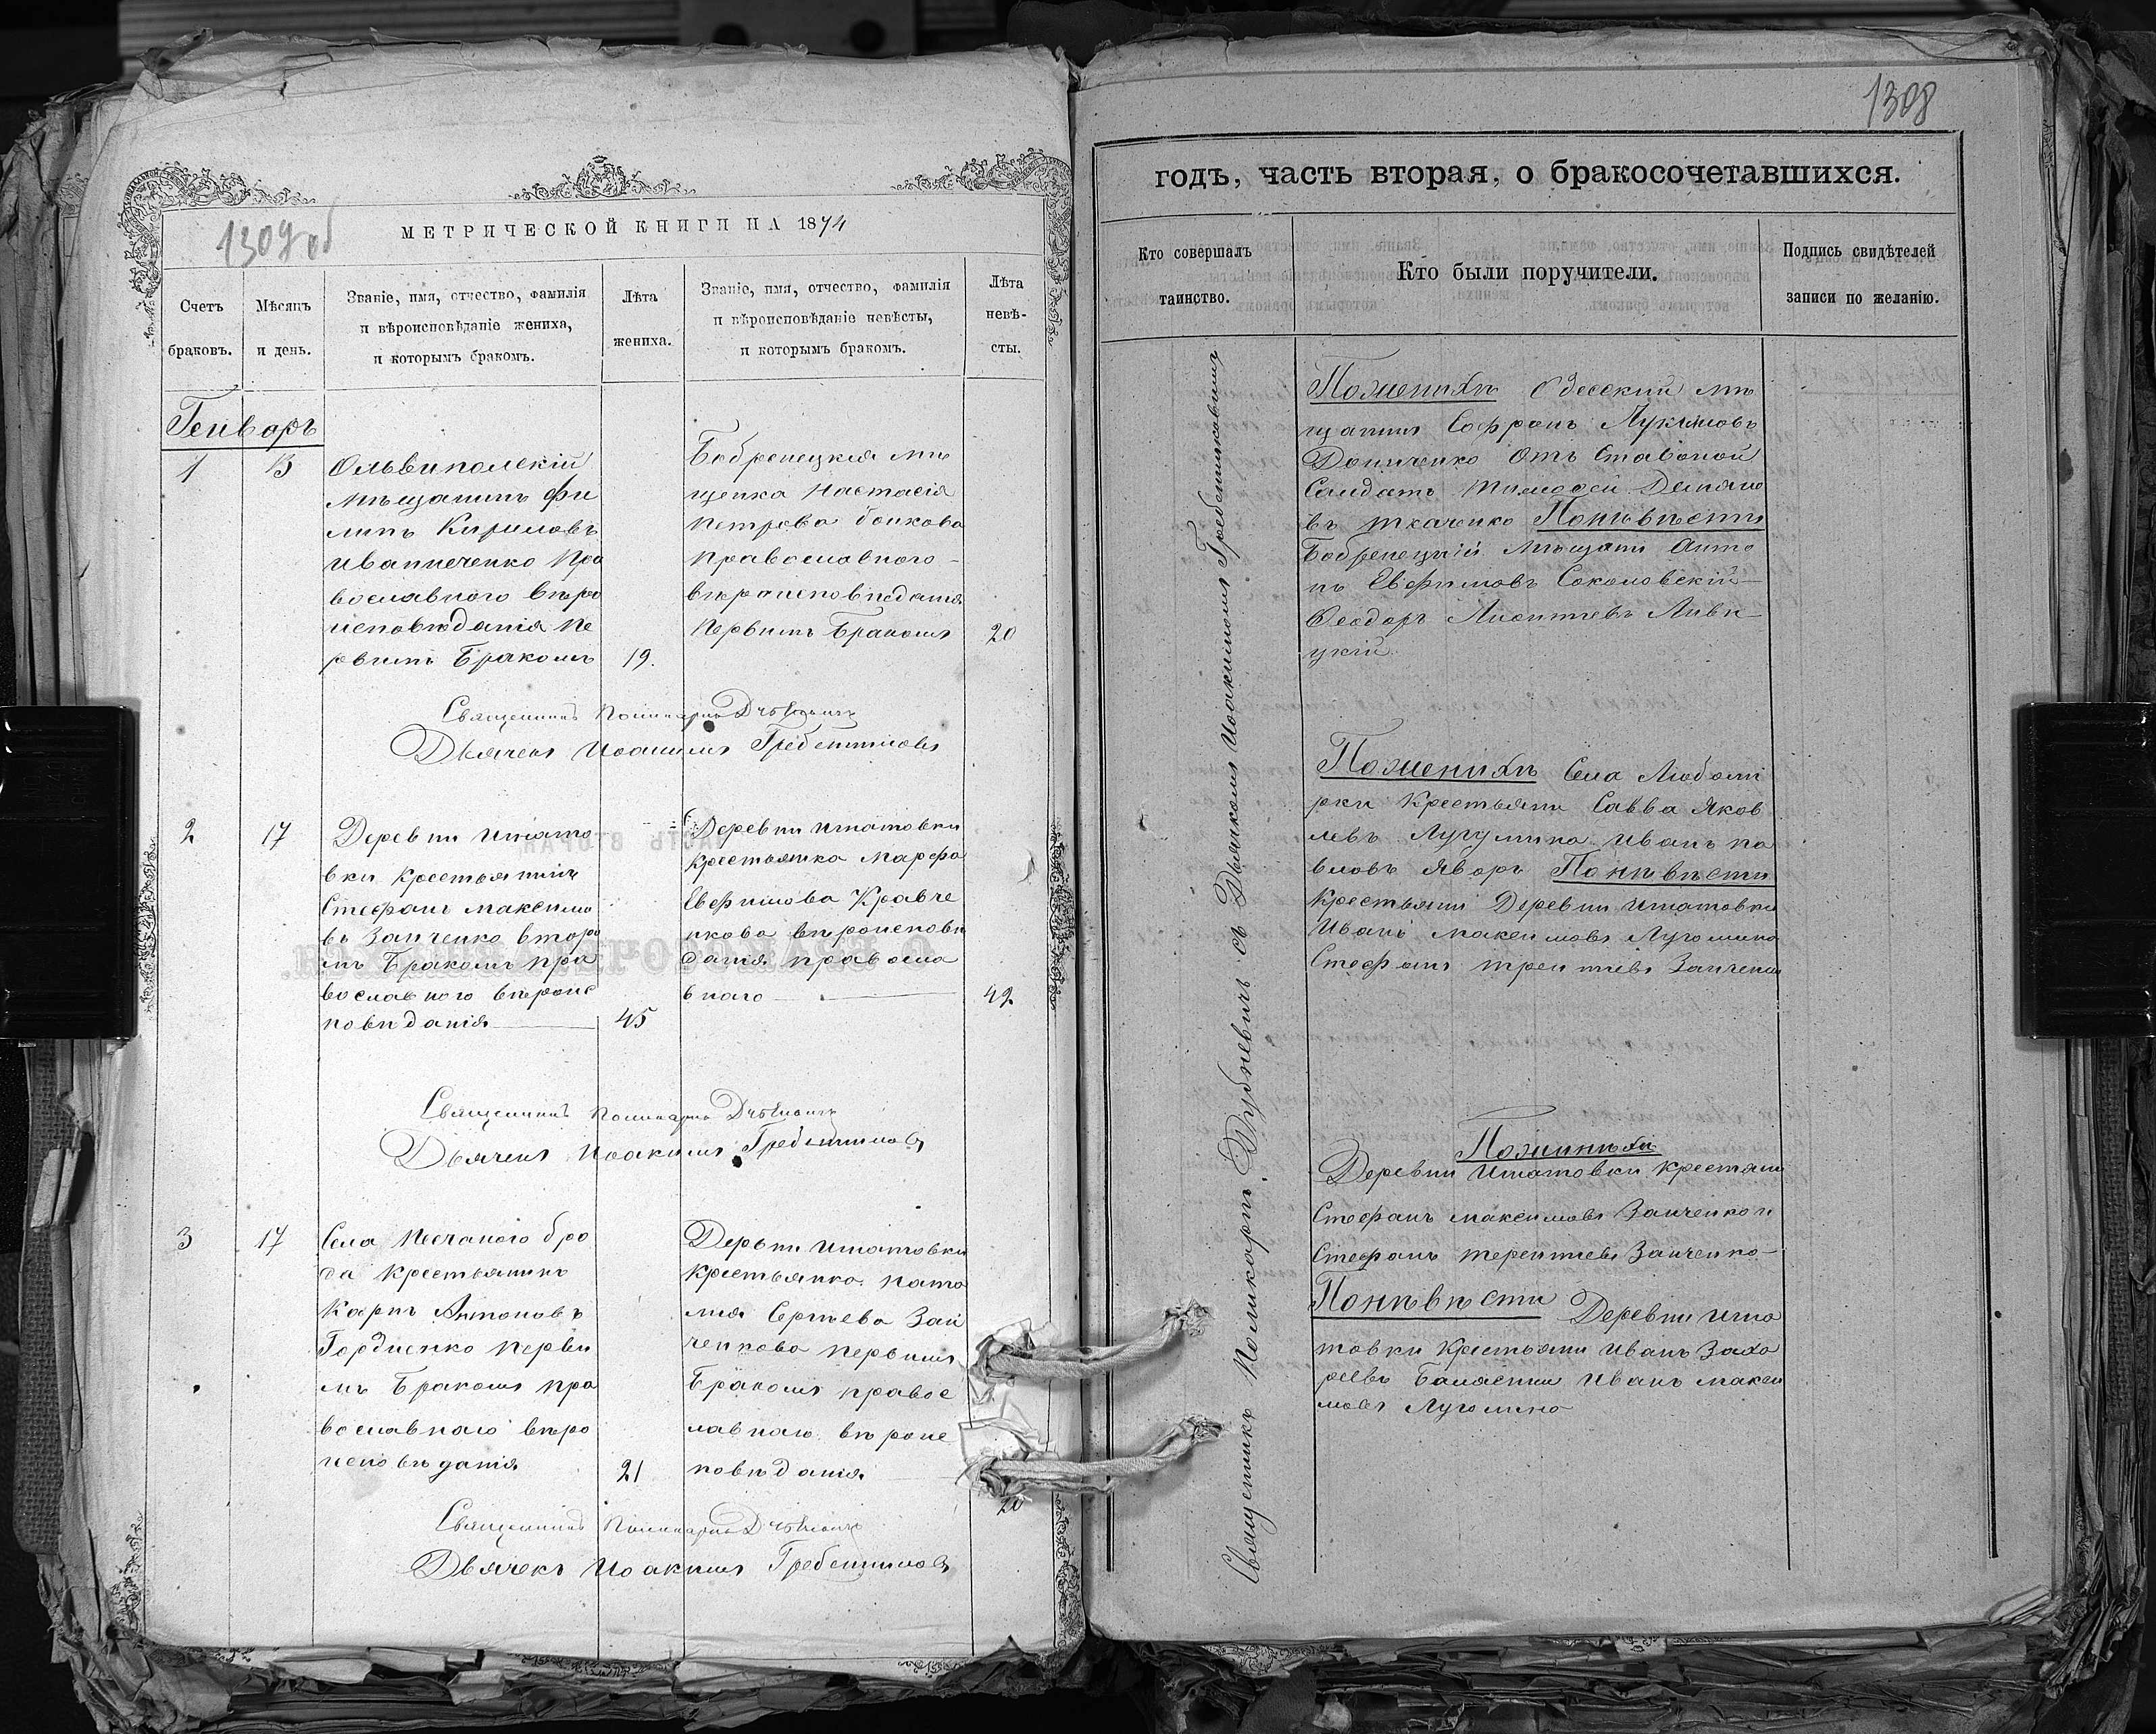 1309 об
МЕТРИЧЕСКОЙ КНИГИ НА 1874
Счетъ браковъ.
Мѣсяцъ и день.
Званіе, имя, отчество, фамилія и вѣроисповѣданіе жениха, и которымъ бракомъ.
Лѣта жениха.
Званіе, имя, отчество, фамилія и вѣроисповѣданіе невѣсты, и которымъ бракомъ.
Лѣта невѣ-
сты.
Генворъ
1
13
Ольвиполскій
мѣщанинъ Фи
липъ Кириловъ
Иванниченко пра
вославного вѣро
исповѣданія пе
рвимъ Бракомъ
19.
Бобренецкая мѣ
щенка Настасія
Петрова
православного
вѣроисповѣданія
Первимъ Бракомъ
20
Священникъ Поликарпъ
Дьячекъ Иоакимъ Гребенниковъ
2
17
Деревни Игнато
вки Крестьянинъ
Стефанъ Максимо
въ Заиченко вторы
мъ Бракомъ пра
вославного вѣроис
повѣданія
45
Деревни Игнатовки
Крестьянка Марфа
Евфимова Кравче
нкова вѣроисповѣ
данія правосла
вного
42
Священникъ Поликарпъ
Дьячекъ Иоакимъ Гребенниковъ
3
17
Села Песчаного бро
да Крестьянинъ
Карпъ Антоновъ
Гордиенко перви
мъ Бракомъ пра
вославнаго вѣро
исповѣданія
21
Деревни Игнатовки
Крестьянка Ната
лия Сергѣева Заи
ченкова первимъ
Бракомъ правос
лавнаго вѣроис
повѣданія
20
Священникъ Поликарпъ
Дьячекъ Иоакимъ Гребенниковъ
1308
годъ, часть вторая, о бракосочетавшихся.
Кто совершалъ таинство.
Кто были поручители.
Подпись свидѣтелей записи по желанію.
Священникъ Поликарпъ Дубневичъ съ Дьячкомъ Иоакимомъ Гребенниковимъ
Поженихѣ Одесский мѣ
щанинъ Софронъ Лукиновъ
Донченко Отъ Ставной
Солдатъ Тимофей Демяно
въ Ткаченко Поневѣсти
Бобренецкій мѣщани Анто
нъ Евфимовъ Соколовскій
Феодоръ Леонтіевъ Ливи
цкій
Поженихѣ Села Любоми
рки Крестьяни Савва Яков
левъ Лугумина Иванъ па
вловъ Яворъ Поневѣсти
Крестьяни Деревни Игнатовки
Иванъ Максимовъ
Стефанъ Заиченко
Поженихѣ
Деревни Игнатовки Крестяни
Стефанъ Максимовъ Заиченко и
Стефанъ Терентіевъ Заиченко
Поневѣсти Деревни Игна
товки Крестьяни Иванъ Заха
ревъ Иванъ Макси
мовъ